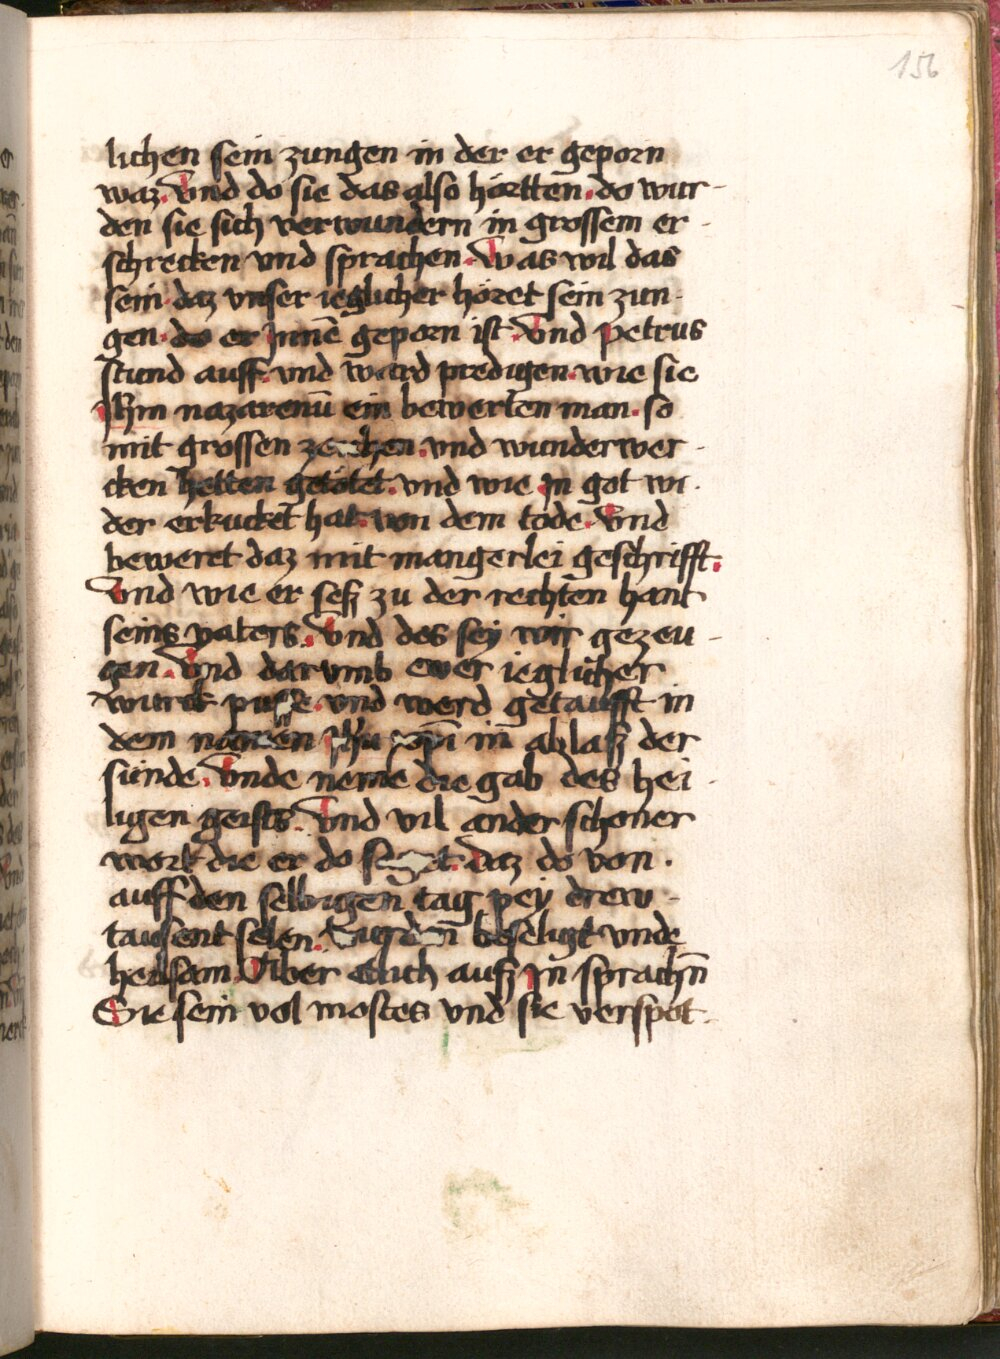 156
lichen sein zungen in der er geporn
waz. Vnd do sie das also hortten. do wur-
den sie sich verwundern in grossem er-
schrecken vnd sprachen. Was wil das
sein. daz vnser ieglicher höret sein zun-
gen. do er Innē geporn ist. Vnd petrus
stund auff. vnd ward predigen. wie sie
Jhm nazarenū ein bewerten man. so
mit grossen zeichen. vnd wunderwer-
cken hetten getötet. vnd wie jn got wi-
der erkucket hat. von dem tode. Vnd
beweret daz mit mangerlei geschrifft.
Vnd wie er seß zu der rechten hant
seins vaters. Vnd des sey wir gezeu-
gen. Vnd darvmb ewer ieglicher
wurck pusse. vnd werd getaufft in
dem namen Jhu xpī in ablaß der
sünde. Vnde neme die gab des hei-
ligen geists. Vnd vil ander schoner
wort die er do saget. daz do von.
auff den selbigen tag pey drew-
tausent selen. wurden beseligt vnde
heilsam. Aber Etlich auß jn sprachn̄
Sie sein vol mostes vnd sie verspot-